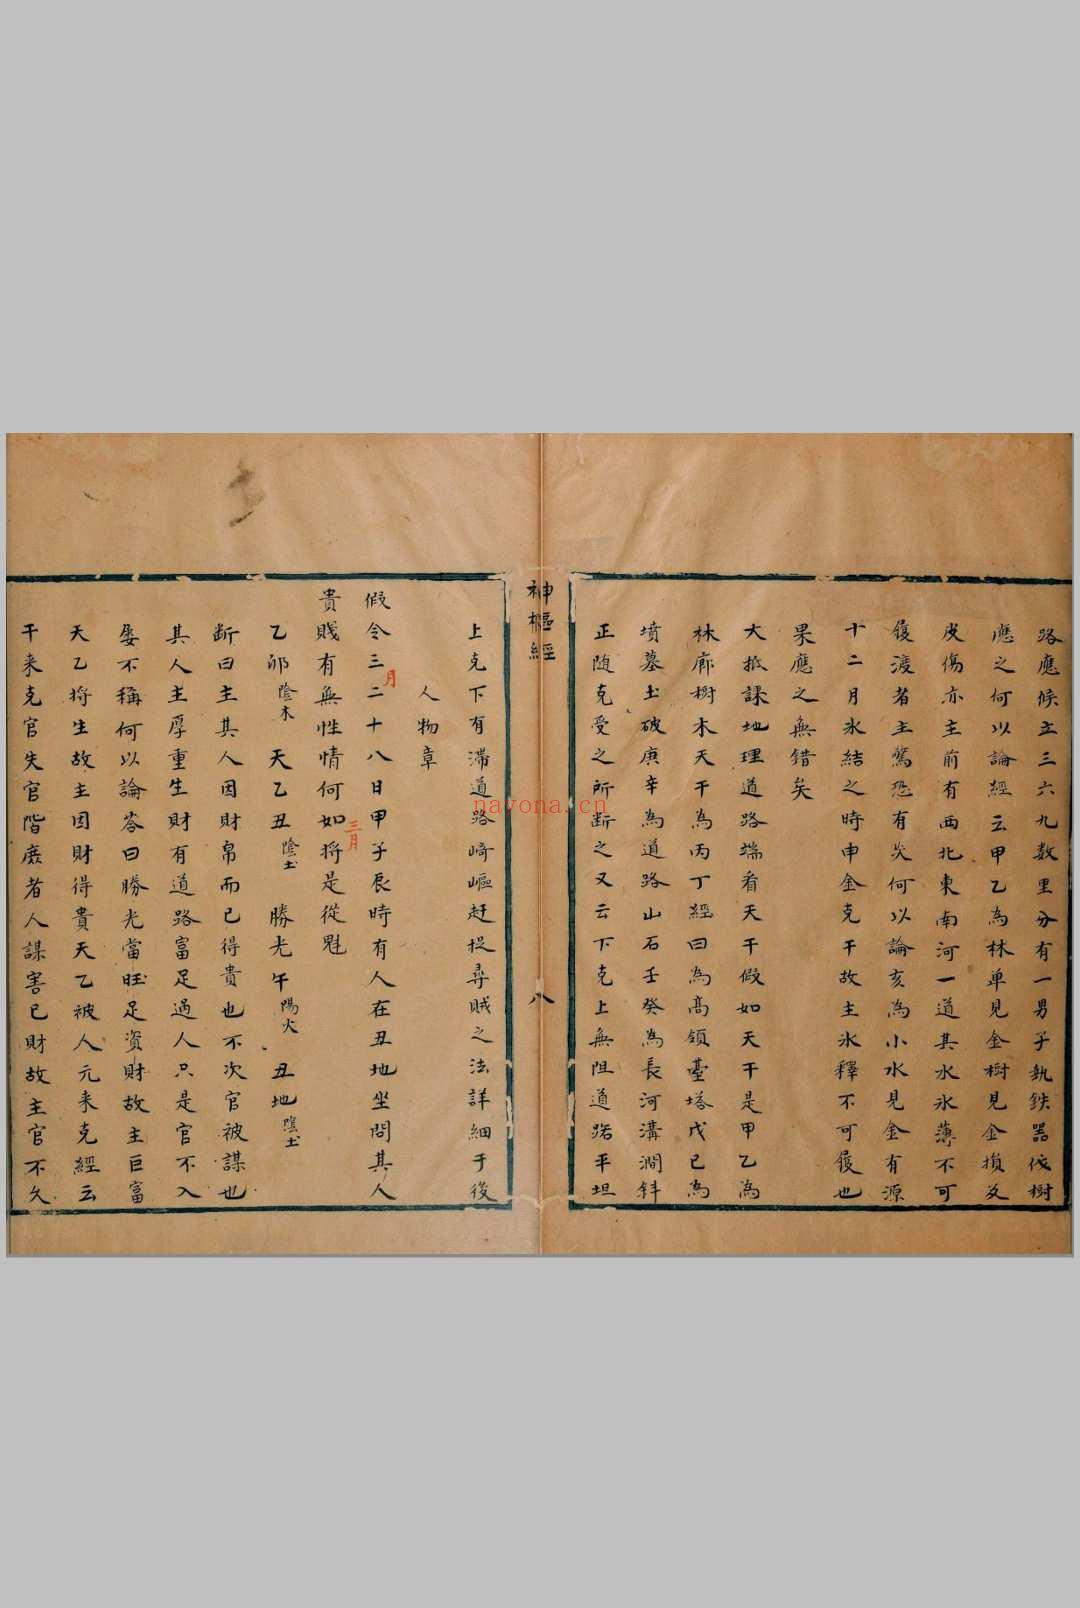 路應候立三六九数里分有一男子執鉄器依樹
應之何以論經云甲乙為林單見金樹見金損為
皮傷亦主前有西北東南河一道其水氷薄不可
履渡者主驚恐有災何以論亥為小水見金有源
十二月氷結之時申金克干故主氷釋不可履也
果應之無錯矣
大抵課地理道路端看天干假如天干是甲乙為
林廊樹木天干為丙丁經曰為高領臺塔戊己為
墳墓土破庚辛為道路山石壬癸為長河溝澗斜
正随克受之所断之又云下克上無阻道路平坦
神樞經
八
上克下有滯道路崎嶇赶捉尋賊之法詳細于後
人物章
假令三月二十八日甲子辰時有人在丑地坐問其人
貴賤有無性情何如三月將是從魁
乙卯陰木 天乙丑陰土 勝光午陽火 丑地陰土
断曰主其人因財帛而已得貴也不次官被謀也
其人主厚重生財有道路富足過人只是官不入
屡不稱何以論答曰勝光當旺足資財故主巨富
天乙將生故主因財得貴天乙被人元来克經云
干来克官失官階廃者人謀害已財故主官不久
navona.cn